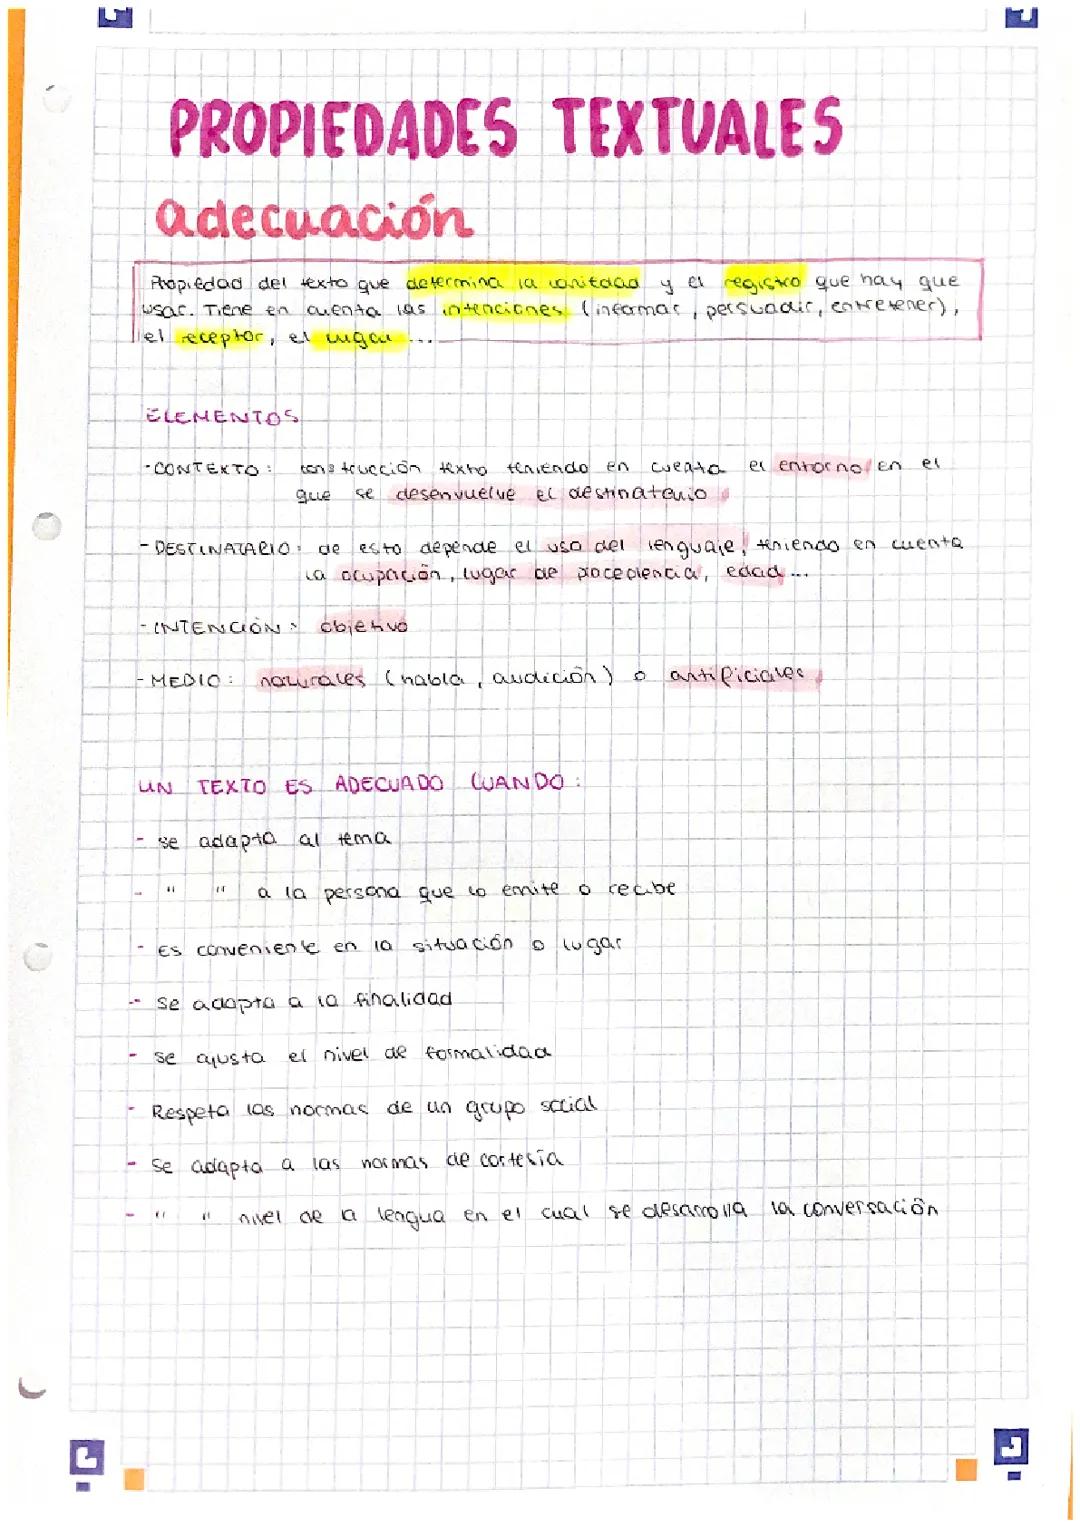 PROPIEDADES TEXTUALES
adecuación
Propiedad del texto que determina la cantidad y el registro que hay que
usar. Tiene en cuenta las intenciones (informar, persuadir, entretener),
el receptor, el lugar...
ELEMENTOS
- CONTEXTO: construcción texto teniendo en cuenta el entorno en el
que se desenvuelve el destinatario
- DESTINATARIO: de esto depende el uso del lenguaje, teniendo en cuenta
la ocupación, lugar de procedencia, edad...
- INTENCIÓN: objetivo
- MEDIO: naturales (habla, audición) o artificiales
UN TEXTO ES ADECUADO CUANDO:
- se adapta al tema
- " " a la persona que lo emite o recibe
- Es conveniente en la situación o lugar
- Se adapta a la finalidad
- Se ajusta el nivel de formalidad
- Respeta las normas de un grupo social
- Se adapta a las normas de cortesía
- " " nivel de la lengua en el cual se desarrolla la conversación